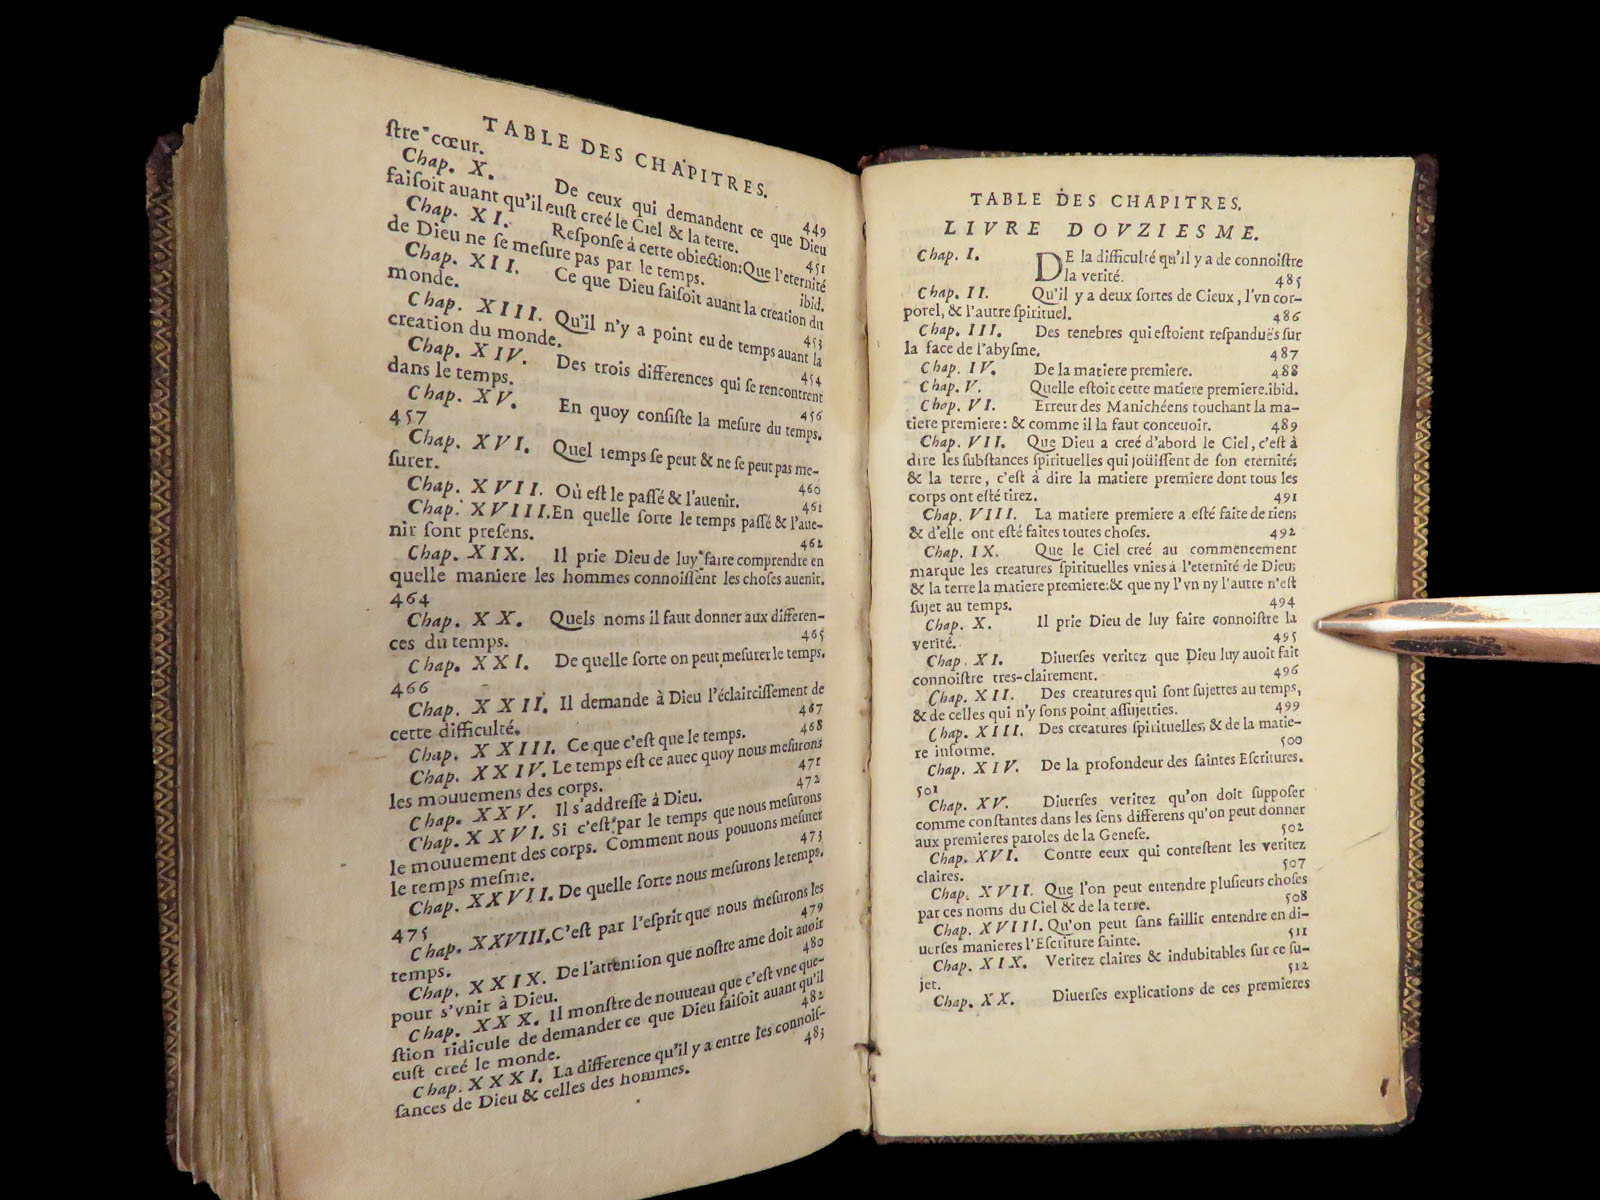 TABLE DES CHAPITRES.
ſtre cœur.
449
Chap. X. De ceux qui demandent ce que Dieu
faiſoit auant qu'il euſt creé le Ciel & la terre.
451
Chap. XI. Reſponſe à cette obiection: Que l'eternité
de Dieu ne ſe meſure pas par le temps.
ibid.
Chap. XII. Ce que Dieu faiſoit auant la creation du
monde.
453
Chap. XIII. Qu'il n'y a point eu de temps auant la
creation du monde.
454
Chap. XIV. Des trois differences qui ſe rencontrent
dans le temps.
456
Chap. XV. En quoy conſiſte la meſure du temps.
457
Chap. XVI. Quel temps ſe peut & ne ſe peut pas me-
ſurer.
460
Chap. XVII. Où eſt le paſſé & l'auenir.
461
Chap. XVIII. En quelle ſorte le temps paſſé & l'aue-
nir ſont preſens.
462
Chap. XIX. Il prie Dieu de luy faire comprendre en
quelle maniere les hommes connoiſſent les choſes auenir.
464
Chap. XX. Quels noms il faut donner aux differen-
ces du temps.
465
Chap. XXI. De quelle ſorte on peut meſurer le temps.
466
Chap. XXII. Il demande à Dieu l'éclairciſſement de
cette difficulté.
467
Chap. XXIII. Ce que c'eſt que le temps.
468
Chap. XXIV. Le temps eſt ce auec quoy nous meſurons
les mouuemens des corps.
471
Chap. XXV. Il s'addreſſe à Dieu.
472
Chap. XXVI. Si c'eſt par le temps que nous meſurons
le mouuement des corps. Comment nous pouuons meſurer
le temps meſme.
473
Chap. XXVII. De quelle ſorte nous meſurons le temps.
475
Chap. XXVIII. C'eſt par l'eſprit que nous meſurons les
temps.
479
Chap. XXIX. De l'attention que noſtre ame doit auoir
pour s'vnir à Dieu.
480
Chap. XXX. Il monſtre de nouueau que c'eſt vne que-
ſtion ridicule de demander ce que Dieu faiſoit auant qu'il
euſt creé le monde.
482
Chap. XXXI. La difference qu'il y a entre les connoiſ-
ſances de Dieu & celles des hommes.
483
TABLE DES CHAPITRES.
LIVRE DOVZIESME.
Chap. I. DE la difficulté qu'il y a de connoiſtre
la verité. 485
Chap. II. Qu'il y a deux ſortes de Cieux, l'vn cor-
porel, & l'autre ſpirituel. 486
Chap. III. Des tenebres qui eſtoient reſpanduës ſur
la face de l'abyſme. 487
Chap. IV. De la matiere premiere. 488
Chap. V. Quelle eſtoit cette matiere premiere. ibid.
Chap. VI. Erreur des Manichéens touchant la ma-
tiere premiere: & comme il la faut conceuoir. 489
Chap. VII. Que Dieu a creé d'abord le Ciel, c'eſt à
dire les ſubſtances ſpirituelles qui joüiſſent de ſon eternité;
& la terre, c'eſt à dire la matiere premiere dont tous les
corps ont eſté tirez. 491
Chap. VIII. La matiere premiere a eſté faite de rien;
& d'elle ont eſté faites toutes choſes. 492
Chap. IX. Que le Ciel creé au commencement
marque les creatures ſpirituelles vnies à l'eternité de Dieu;
& la terre la matiere premiere: & que ny l'vn ny l'autre n'eſt
ſujet au temps. 494
Chap. X. Il prie Dieu de luy faire connoiſtre la
verité. 495
Chap. XI. Diuerſes veritez que Dieu luy auoit fait
connoiſtre tres-clairement. 496
Chap. XII. Des creatures qui ſont ſujettes au temps,
& de celles qui n'y ſons point aſſujetties. 499
Chap. XIII. Des creatures ſpirituelles, & de la matie-
re informe. 500
Chap. XIV. De la profondeur des ſaintes Eſcritures.
501
Chap. XV. Diuerſes veritez qu'on doit ſuppoſer
comme conſtantes dans les ſens differens qu'on peut donner
aux premieres paroles de la Geneſe. 502
Chap. XVI. Contre ceux qui conteſtent les veritez
claires. 507
Chap. XVII. Que l'on peut entendre pluſieurs choſes
par ces noms du Ciel & de la terre. 508
Chap. XVIII. Qu'on peut ſans faillir entendre en di-
uerſes manieres l'Eſcriture ſainte. 511
Chap. XIX. Veritez claires & indubitables ſur ce ſu-
jet. 512
Chap. XX. Diuerſes explications de ces premieres